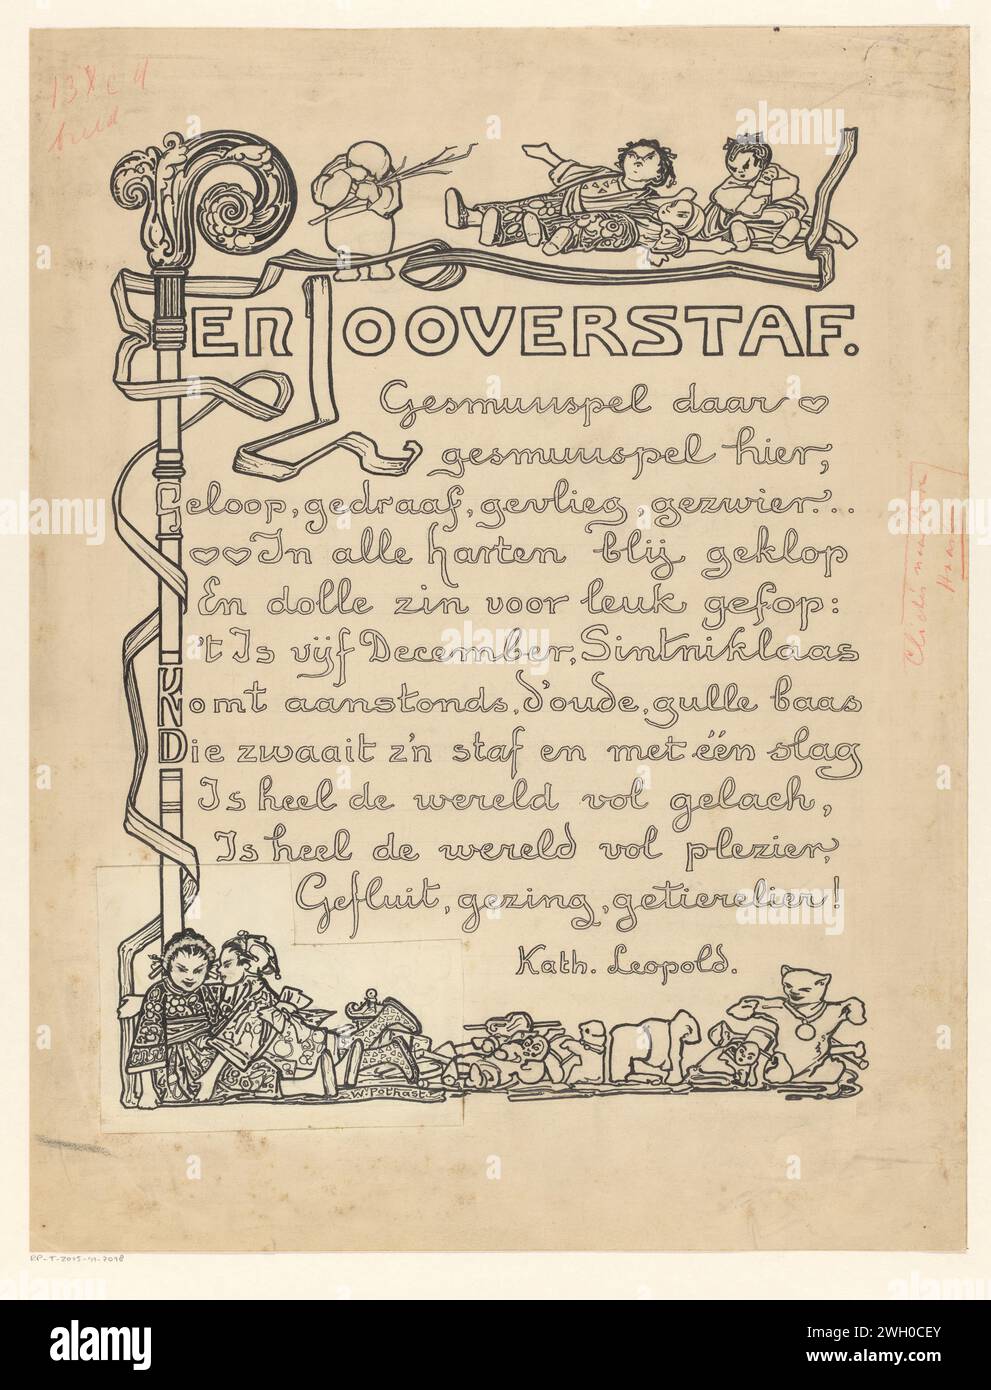 13 X c q
breed
EEN TOOVERSTAF.
Gesmuuspel daar
gesmuuspel hier,
Geloop, gedraaf, gevlieg, gezwier...
In alle harten blij geklop
En dolle zin voor leuk gefop:
't Is vijf December, Sintniklaas
Komt aanstonds, d'oude, gulle baas
Die zwaait z'n staf en met één slag
Is heel de wereld vol gelach,
Is heel de wereld vol plezier,
Gefluit, gezing, getierelier!
Kath. Leopold.
W. Pothast.
RP-T-2015-41-2098
alamy
Image ID: 2WH0CEY
www.alamy.com